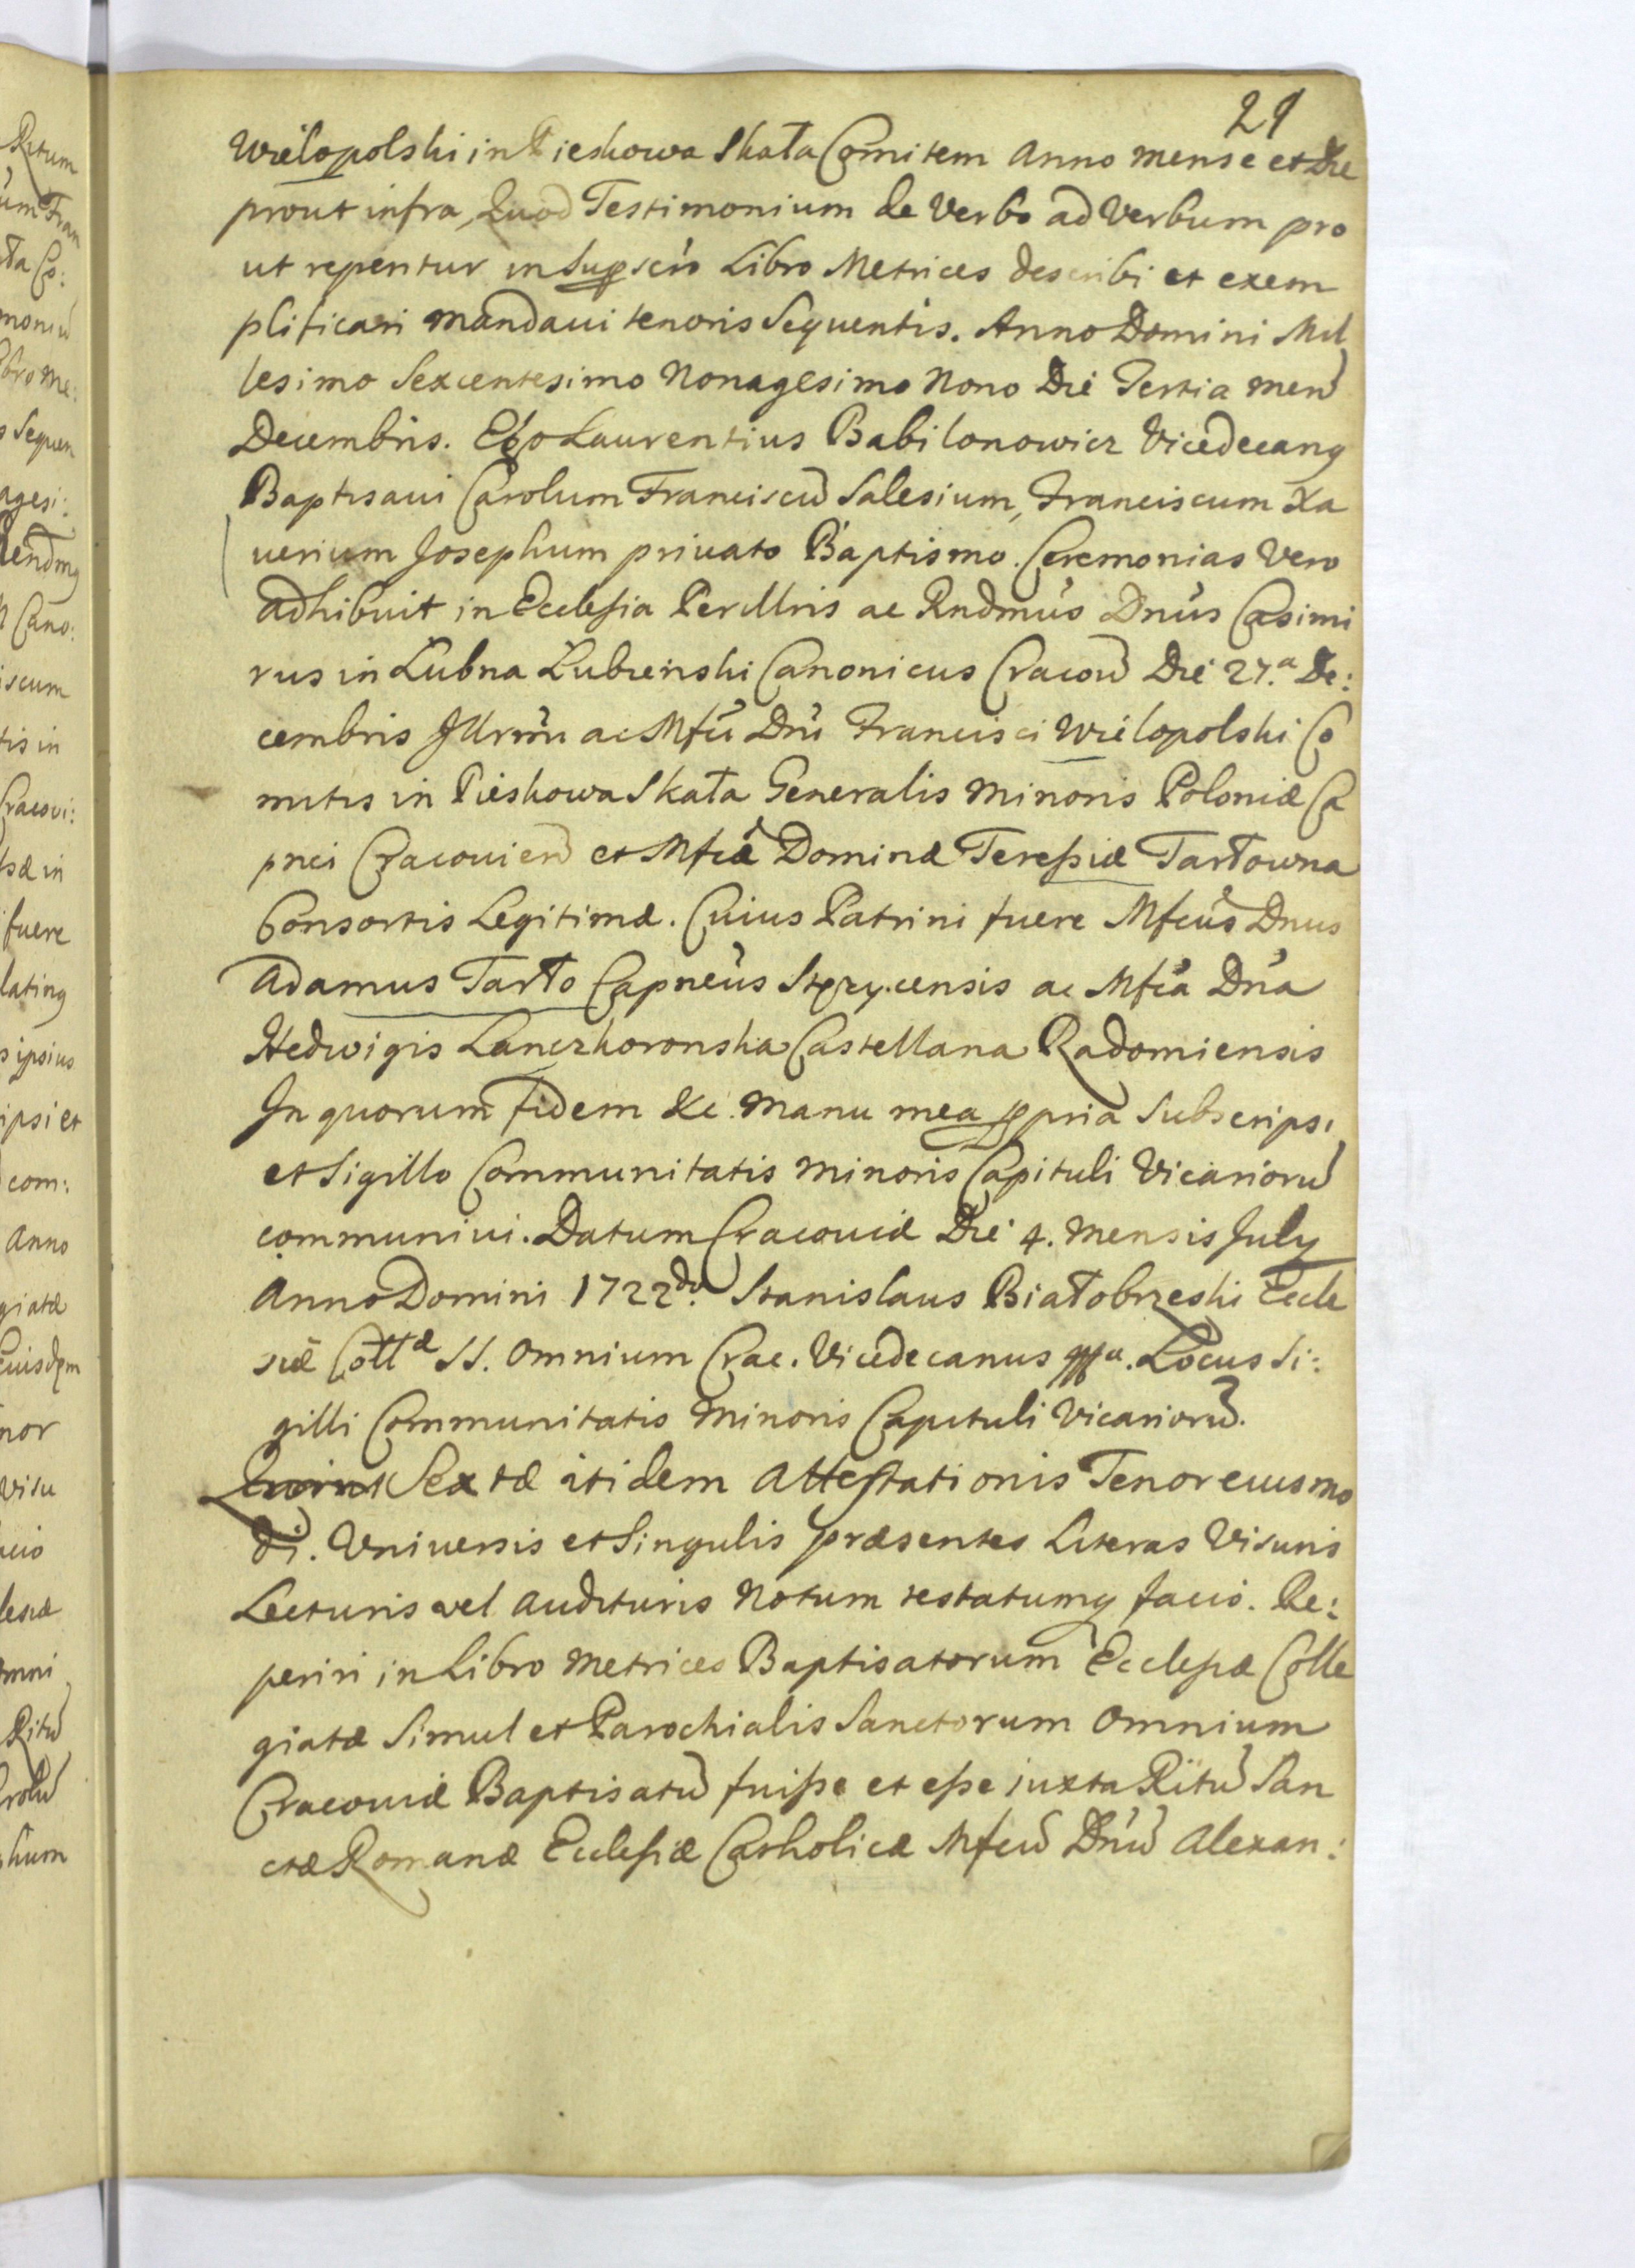 29
Wielopolski in Pieskowa Skała Comitem Anno mense et Die
prout infra, Quod Testimonium de Verbo ad Verbum pro
ut reperitur in Supscrō Libro Metrices describi et exem
plificari mandaui tenoris Sequentis. Anno Domini Mil
lesimo Sexcentesimo Nonagesimo Nono Die Tertia mens
Decembris. Ego Laurentius Babilonowicz Vicedecang
Baptisaui Carolum Franciscū Salesium, Franciscum Xa
uerium Josephum priuato Baptismo. Ceremonias Vero
adhibuit in Ecclesia Perillris ac Rndmus Dnus Casimi
rus in Łubna Łubienski Canonicus Cracow Die 27.a De:
cembris Illrm̄i ac Mfci Dni Francisci Wielopolski Co
mitis in Pieskowa Skała Generalis minoris Poloniæ Ca
pnei Cracouien et Mfcæ Dominæ Teresiæ Tarłowna
Consortis Legitimæ. Cuius Patrini fuere Mfcus Dnus
Adamus Tarło Capneus Stęzycensis ac Mfca Dna
Hedwigis Lanczkoronska Castellana Radomiensis
In quorum fidem &c. Manu mea ppria Subscripsi
et Sigillo Communitatis minoris Capituli Vicariorū
communiui. Datum Cracouiæ Die 4. mensis July
Anno Domini 1722do. Stanislaus Białobrzeski Eccle
siæ Collæ SS. Omnium Crac. Vicedecanus Locus Si:
gilli Communitatis Minoris Capituli Vicariorū.
Sextæ itidem Attestationis Tenor eiusmo
di. Vniuersis et Singulis præsentes Literas Visuris
Lecturis vel Audituris Notum testatumq facio. Re:
periri in Libro Metrices Baptisatorum Ecclesiæ Colle
giatæ Simul et Parochialis Sanctorum Omnium
Cracouiæ Baptisatū fuisse et esse iuxta Ritū San
ctæ Romanæ Ecclesiæ Catholicæ Mfcū Dnū Alexan: